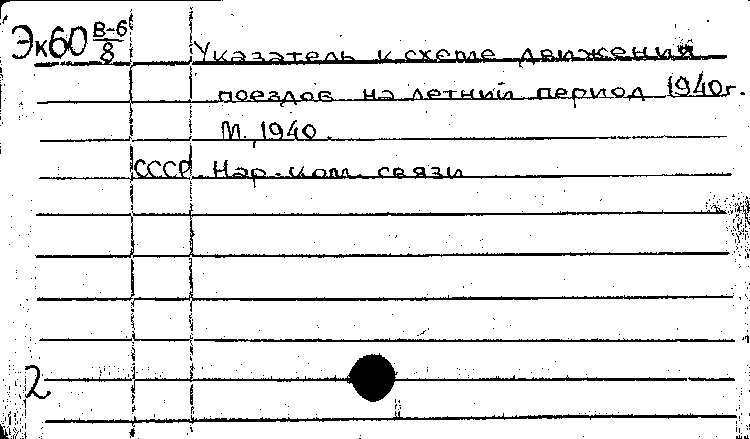 Эк60 В-6/8
Указатель к схеме движения
поездов на летний период 1940г.
М., 1940.
СССР. Нар. ком. связи
2